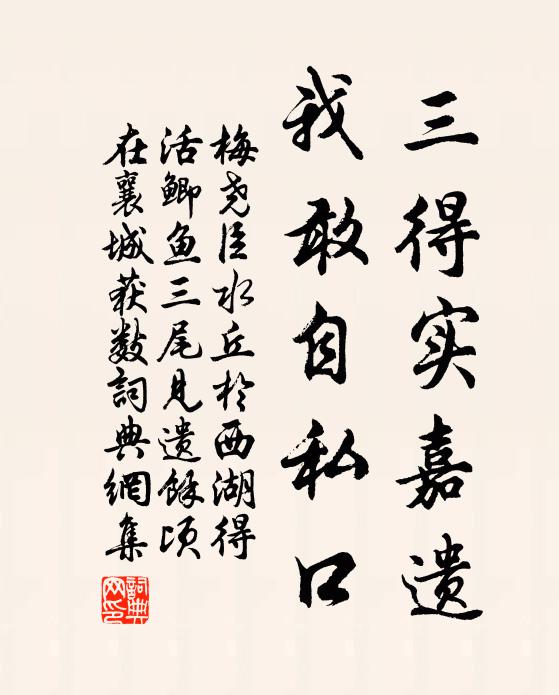 三得实嘉遗
我敢自私口
梅尧臣水丘於西湖得
活鲫鱼三尾见遗馀顷
在襄城获数詞典網集
詞典網印